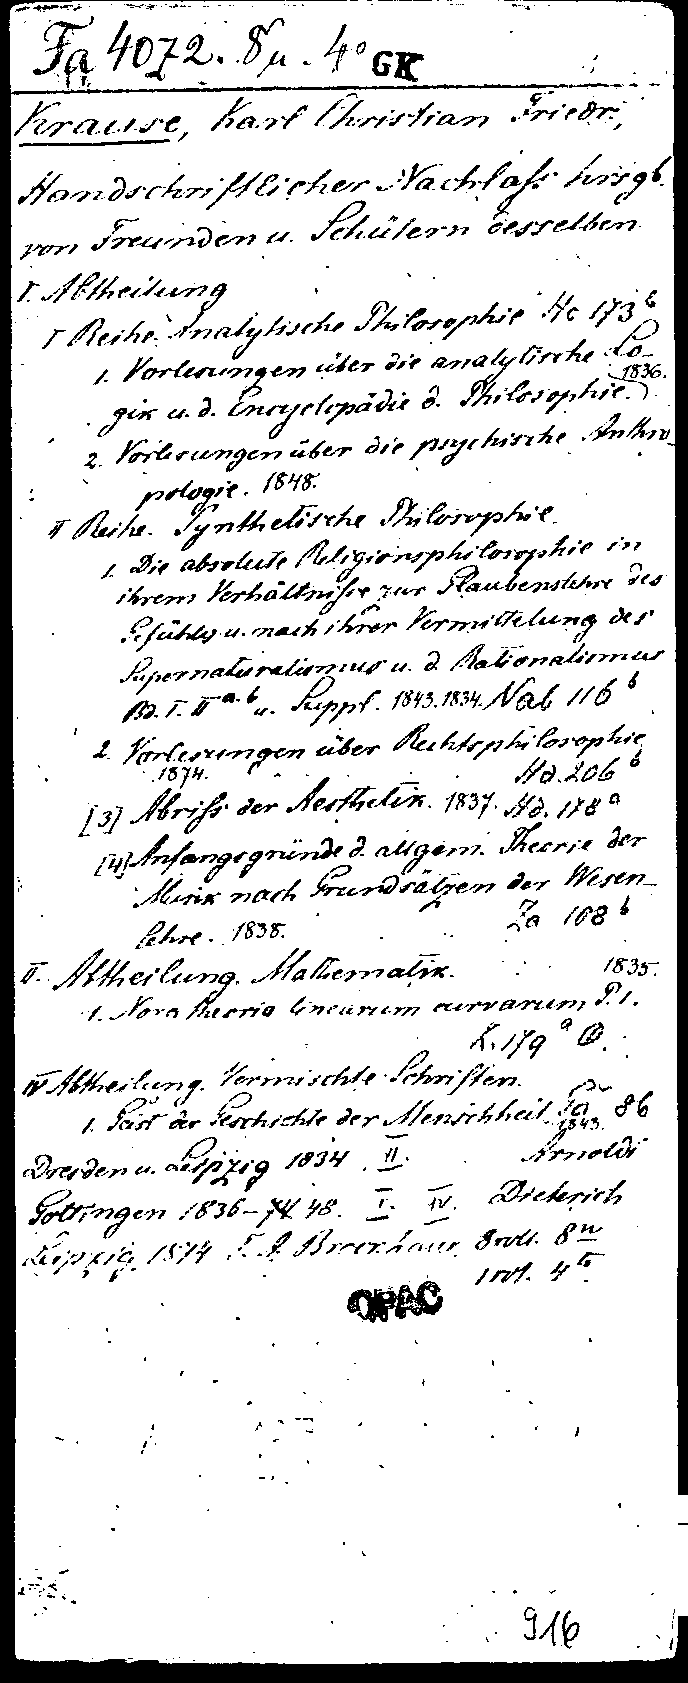 Fa 4072. 8 u. 4° GK
Krause, Karl Christian Friedr.,
Handschriftlicher Nachlass hrsgb.
von Freunden u. Schülern desselben
I. Abtheilung
I Reihe. Analytische Philosophie Hc 173 b
1. Vorlesungen über die analytische Lo-
1836.
gik u. d. Encyclopädie d. Philosophie.
2. Vorlesungen über die psychische Anthro-
pologie. 1848.
II Reihe. Synthetische Philosophie.
1. Die absolute Religionsphilosophie in
ihrem Verhältnisse zur Glaubenslehre des
Gefühls u. nach ihrer Vermittelung des
Supernaturalismus u. d. Rationalismus
Bd. I. II a. b u. Suppl. 1843. 1834. Nab 116 b
2. Vorlesungen über Rechtsphilosophie
1874. Hd. 206 b
[3] Abriss der Aesthetik. 1837. Hd. 178 a
[4] Anfangsgründe d. allgem. Theorie der
Musik nach Grundsätzen der Wesen-
lehre. 1838. Za 108 b
II. Abtheilung. Mathematik. 1835.
1. Nova theoria linearum curvarum P. 1.
179 a
IV Abtheilung. Vermischte Schriften.
1. Geist der Geschichte der Menschheit Fa 86
1843.
Dresden u. Leipzig 1834 II. Arnoldi
Göttingen 1836-48. I. IV. Dieterich
Leipzig 1874 F. A. Brockhaus 8 voll. 8 u
1 vol. 4 to
OPAC
916